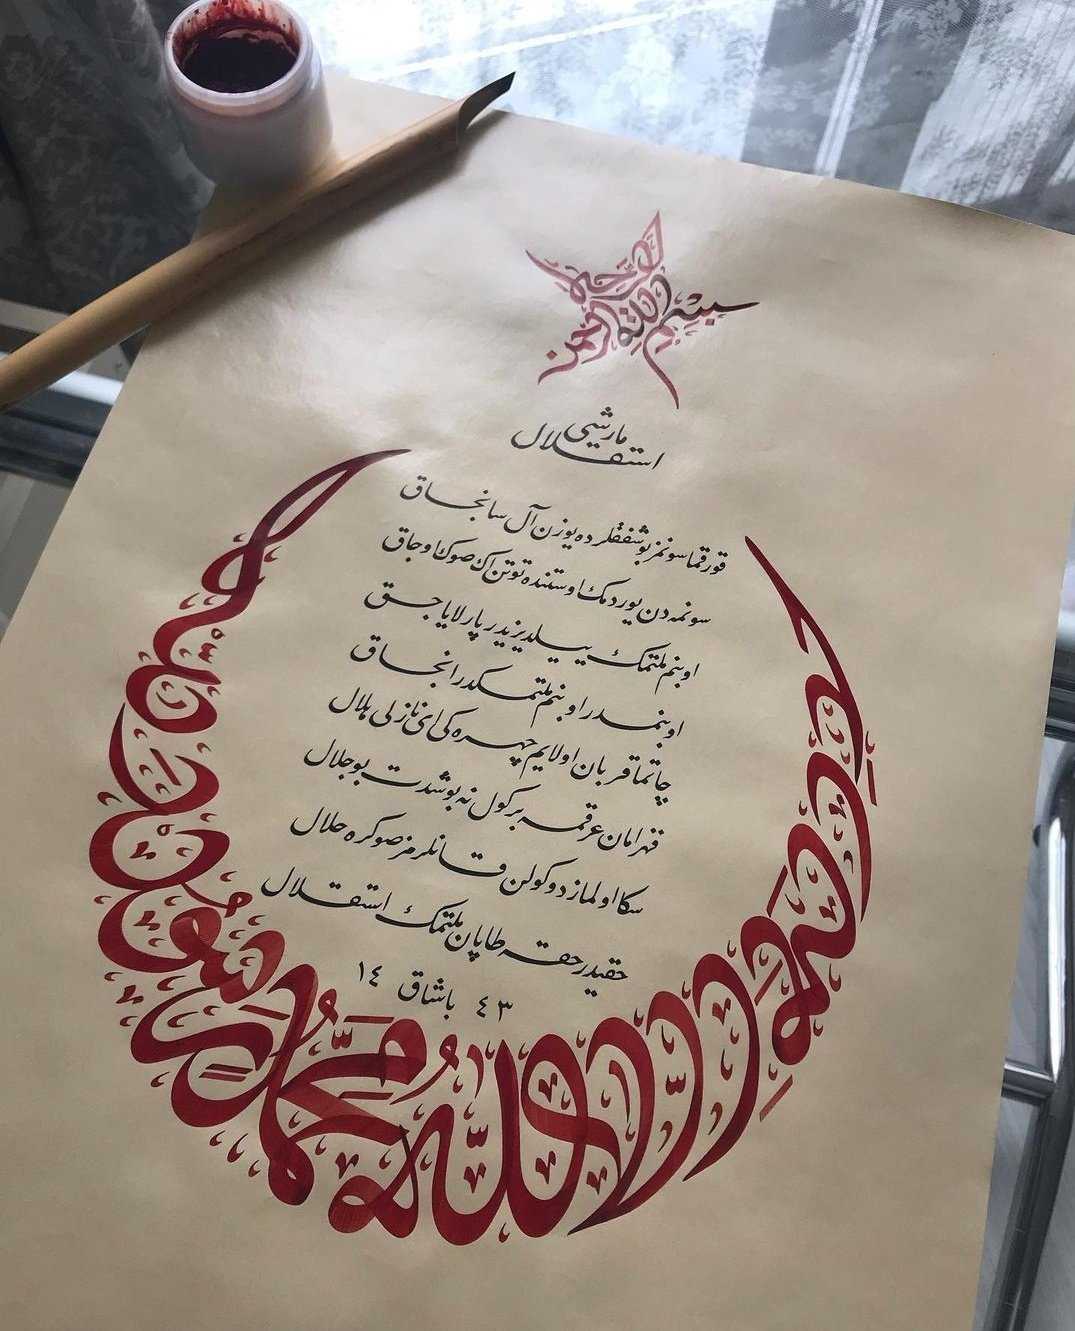 بسم الله الرحمن الرحيم
استقلال مارشی
قورقما سونمز بو شفقلرده یوزن آل سانجاق
سونمه‌دن یوردمك اوستنده توتن اك صوك اوجاق
او بنم ملتمك ییلدیزیدر پارلایاجق
او بنمدر او بنم ملتمكدر انجاق
چاتما قربان اولایم چهره‌كی ای نازلی هلال
قهرامان عرقمه بر كول نه بو شدت بو جلال
سكا اولماز دوكولن قانلرمز صوكره حلال
حقیدر حقه طاپان ملتمك استقلال
٤٣ باشاق ١٤
محمد رسول